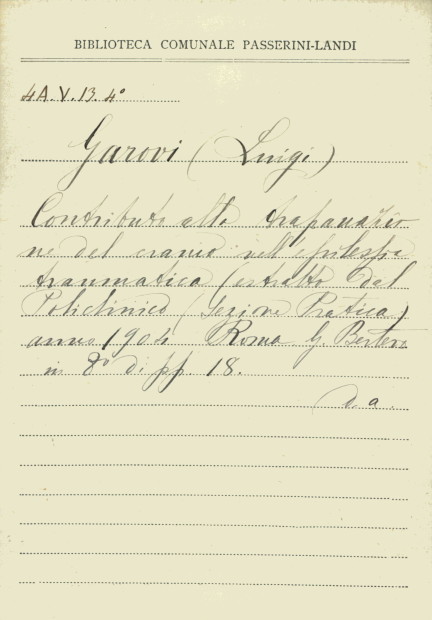 BIBLIOTECA COMUNALE PASSERINI-LANDI
4A.V.13.4°
Garovi (Luigi)
Contributo alla trapanazio
ne del cranio nell'epilessia
traumatica (estratto dal
Policlinico (Sezione Pratica)
anno 1904 Roma G. Bertero
in 8° di pp 18.
d. a.